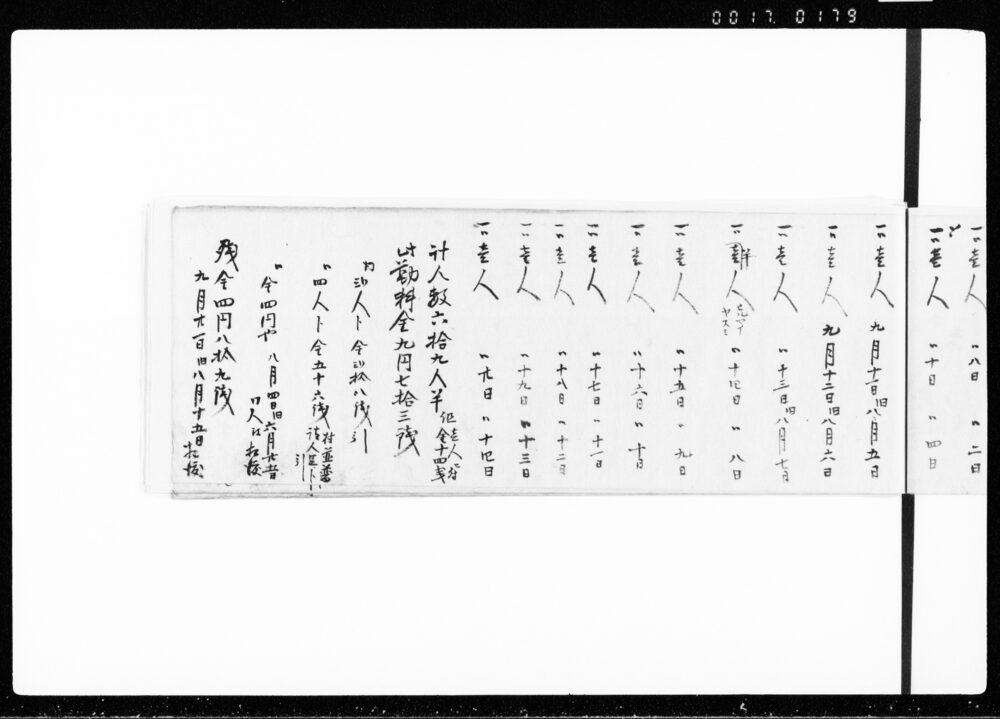 0017. 0179
一〃壱人 〃八日 〃二日
一〃壱人 〃十日 〃四日
一〃壱人 九月十一日旧八月五日
一〃壱人 九月十二日旧八月六日
一〃壱人 〃十三日旧八月七日
一〃半人 ヤスミ 〃十四日 〃八日
一〃壱人 〃十五日 〃九日
一〃壱人 〃十六日 〃十日
一〃壱人 〃十七日 〃十一日
一〃壱人 〃十八日 〃十二日
一〃壱人 〃十九日 〃十三日
一〃壱人 〃廿日 〃十四日
計人数六拾九人半 但壱人ニ付金十四戋
此勤料金九円七拾三戋
内 弐人ト金弐拾八戋引
〃四人ト金五十六戋
〃金四円也 八月四日旧六月廿五日
残金四円八拾九戋
九月廿一日旧八月十五日